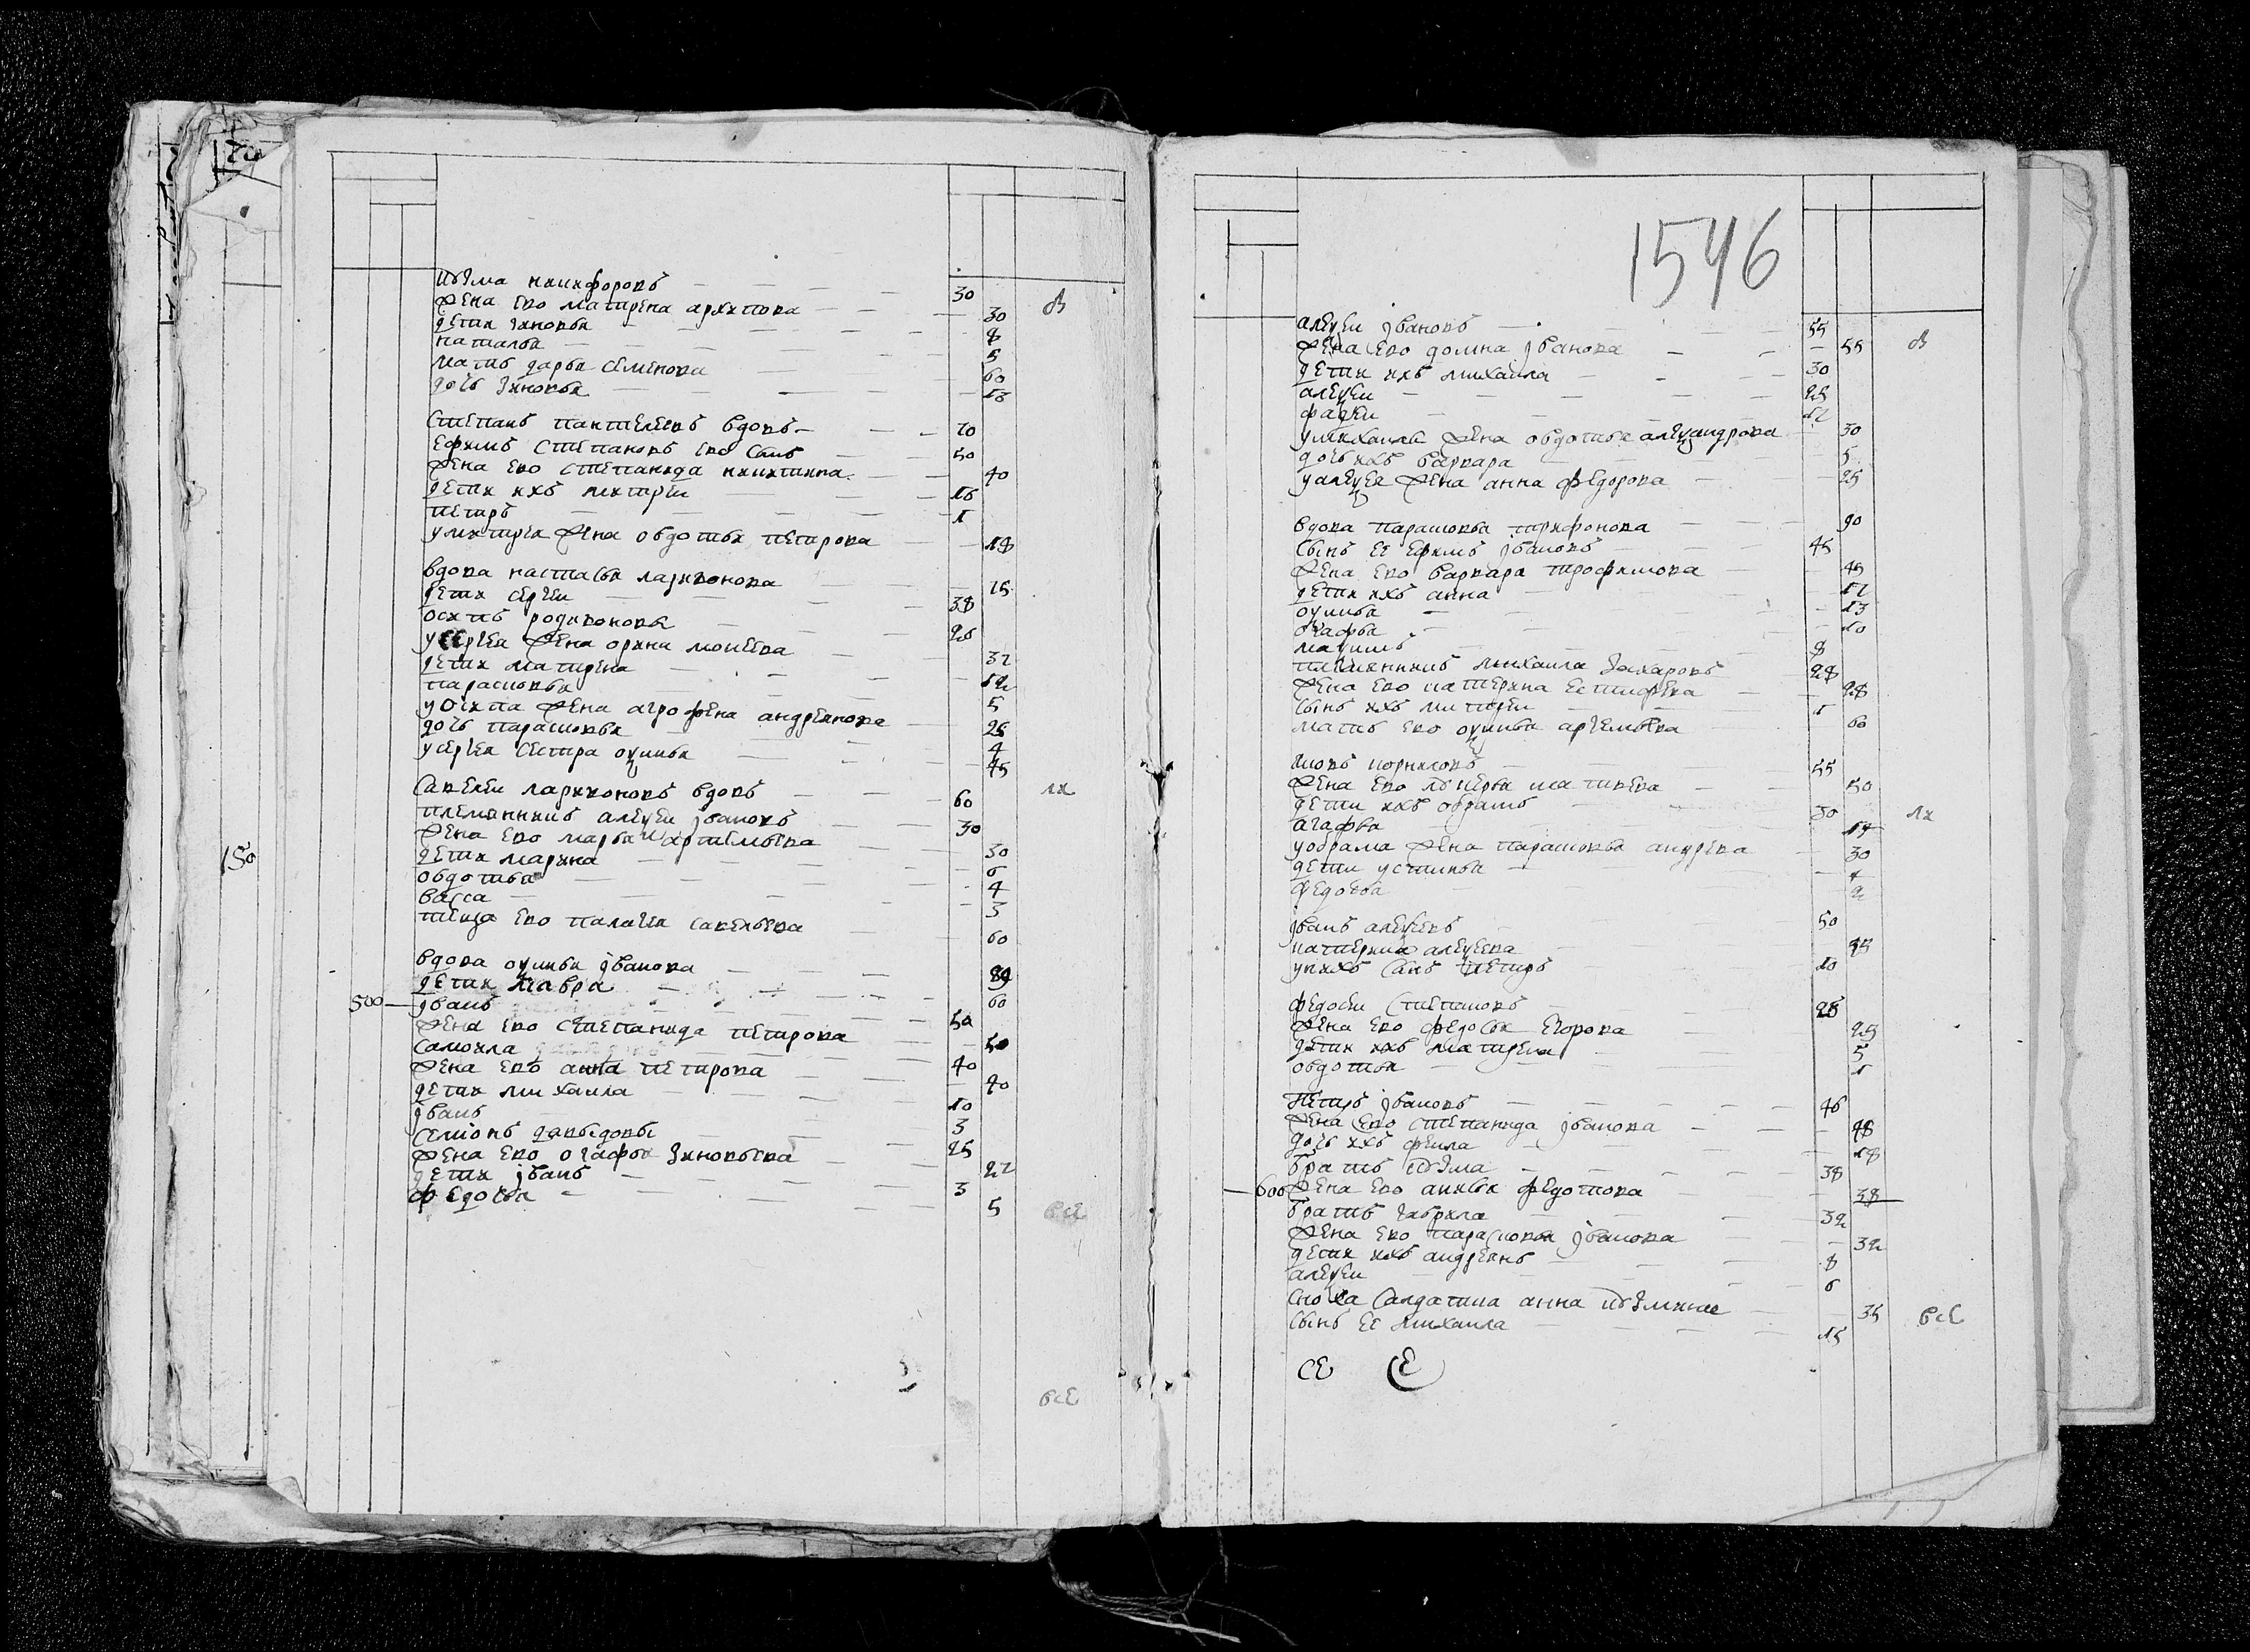 кузма никифоровъ 30
жена ево матрена архипова 30
дети зиновья 8
наталья 5
мать дарья семенова 60
дочь зиновья 18
степанъ пантелеевъ вдовъ 70
ефимъ степановъ ево сынъ 50
жена ево степанида никитина 40
дети ихъ митреи 16
петръ 1
умитрея жена овдотья петрова 18
вдова настасья ларивонова 75
дети сергеи 38
осипъ родивоновы 26
усергея жена орина моисева 37
дети матрена 12
парасковья 5
уосипа жена агрофена андреянова 26
дочь парасковья 4
усергея сестра оксинья 45
савелеи ларивоновъ вдовъ 60
племянникъ алексеи івановъ 30
жена ево марья артемьева 30
дети марина 6
овдотья 4
васса 3
теща ево палагея савельева 60
вдова оксинья іванова 89
дети мавра 60
500 іванъ 50
жена ево степанида петрова 50
самоила 40
жена ево анна петрова 40
дети михаила 10
іванъ 3
семіонъ давыдовы 25
жена ево огафья зиновьева 27
дети іванъ 3
федосья 5
150
1546
алексеи івановъ 55
жена ево домна іванова 55
дети ихъ михаила 30
алексеи 25
фадеи 17
умихаила жена овдотья александрова 30
дочь ихъ варвара 5
уалексея жена анна федорова 25
вдова парасковья трифонова 90
сынъ ее ефимъ івановъ 45
жена ево варвара трофимова 45
дети ихъ анна 17
оксинья 13
огафья 10
максимъ 8
племянникъ михаила захаровъ 28
жена ево катерина естифева 28
сынъ ихъ митреи 1
мать ево оксинья артемьева 60
іовъ корниловъ 55
жена ево лукерья матвеева 50
дети ихъ обрамъ 30
агафья 14
уобрама жена парасковья андреева 30
дети устинья 4
федосья 2
іванъ алексеевъ 50
катерина алексеева 45
унихъ сынъ петръ 10
федосеи степановъ 28
жена ево федосья егорова 25
дети ихъ матрена 5
овдотья 1
петръ івановъ 46
жена ево степанида іванова 48
дочь ихъ фекла 18
братъ кузма 38
600 жена ево анисья федотова 38
братъ гаврила 32
жена ево парасковья іванова 32
дети ихъ андреянъ 8
алексеи 6
сноха салдатка анна кузмина 35
сынъ ее михаила 15